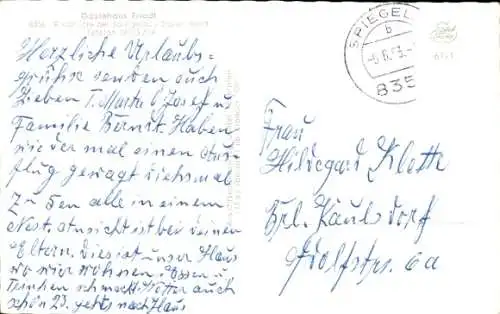 Gästehaus Ernst
Herzliche Urlaubs-
grüße senden auch
Lieben T. Marta b Josef u
Familie Bernst. Haben
wir der mal einen Aus-
flug gewagt diehsmal
zu 5en alle in einem
Nest. Ansicht ist bei deinen
Eltern. Dies ist unser Haus
wo wir wohnen. Essen u
Trinken schmeckt. Wetter auch
schön 23. gehts nach Haus
SPIEGEL
b
835
Frau
Hildegard Klotte
Brl. Kaulsdorf
Adolfstr. 6a